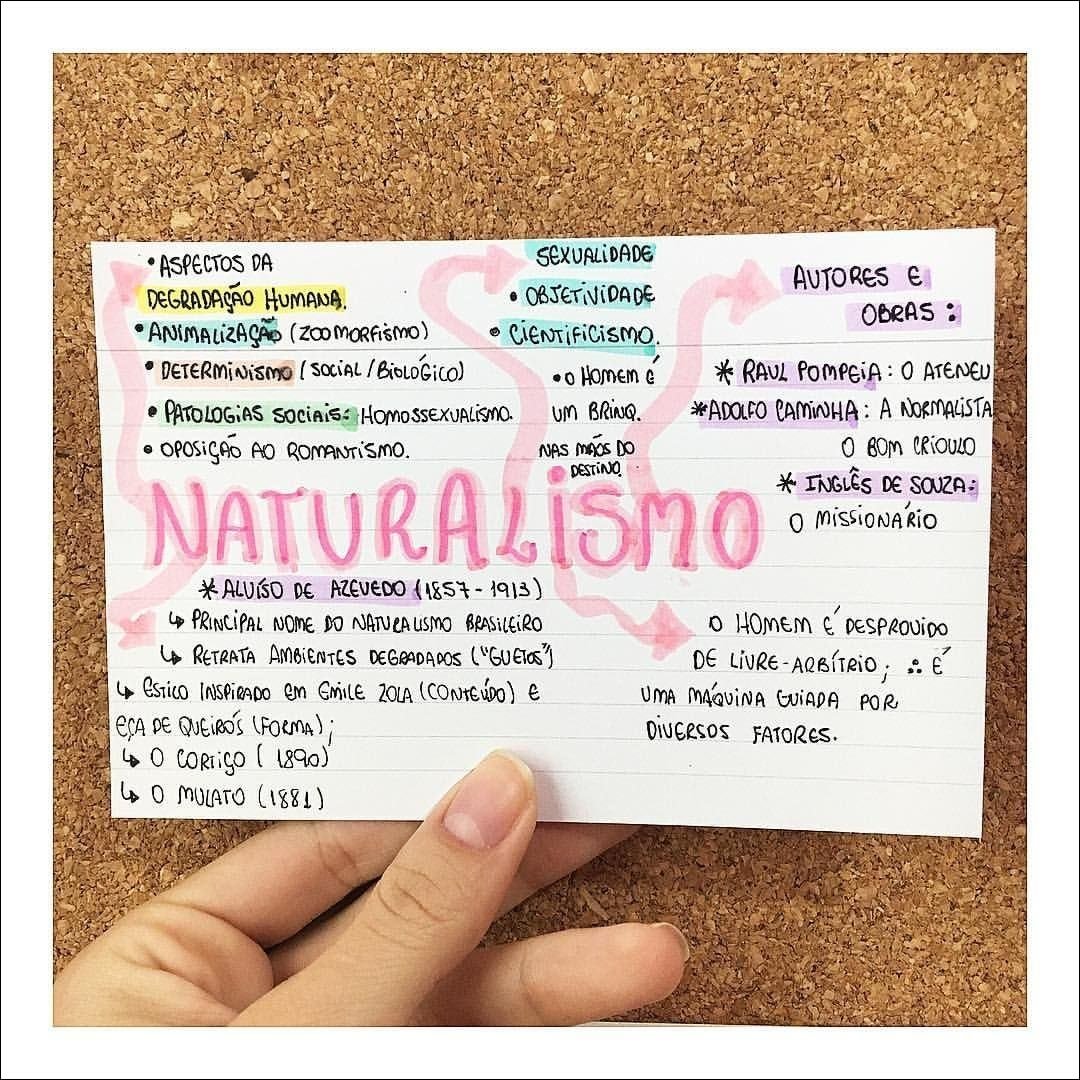 • ASPECTOS DA
DEGRADAÇÃO HUMANA.
• ANIMALIZAÇÃO (ZOOMORFISMO)
• DETERMINISMO (SOCIAL/BIOLÓGICO)
• PATOLOGIAS SOCIAIS: HOMOSSEXUALISMO.
• OPOSIÇÃO AO ROMANTISMO.
SEXUALIDADE
• OBJETIVIDADE
• CIENTIFICISMO.
• O HOMEM É
UM BRINQ.
NAS MÃOS DO
DESTINO.
AUTORES E
OBRAS:
* RAUL POMPEIA: O ATENEU
* ADOLFO CAMINHA: A NORMALISTA
O BOM CRIOULO
* INGLÊS DE SOUZA:
O MISSIONÁRIO
NATURALISMO
* ALUÍSO DE AZEVEDO (1857-1913)
↳ PRINCIPAL NOME DO NATURALISMO BRASILEIRO
↳ RETRATA AMBIENTES DEGRADADOS ("GUETOS")
↳ ESTICO INSPIRADO EM EMILE ZOLA (CONTEÚDO) E
EÇA DE QUEIRÓS (FORMA);
↳ O CORTIÇO (1890)
↳ O MULATO (1881)
O HOMEM É DESPROVIDO
DE LIVRE-ARBÍTRIO; ∴ É
UMA MÁQUINA GUIADA POR
DIVERSOS FATORES.